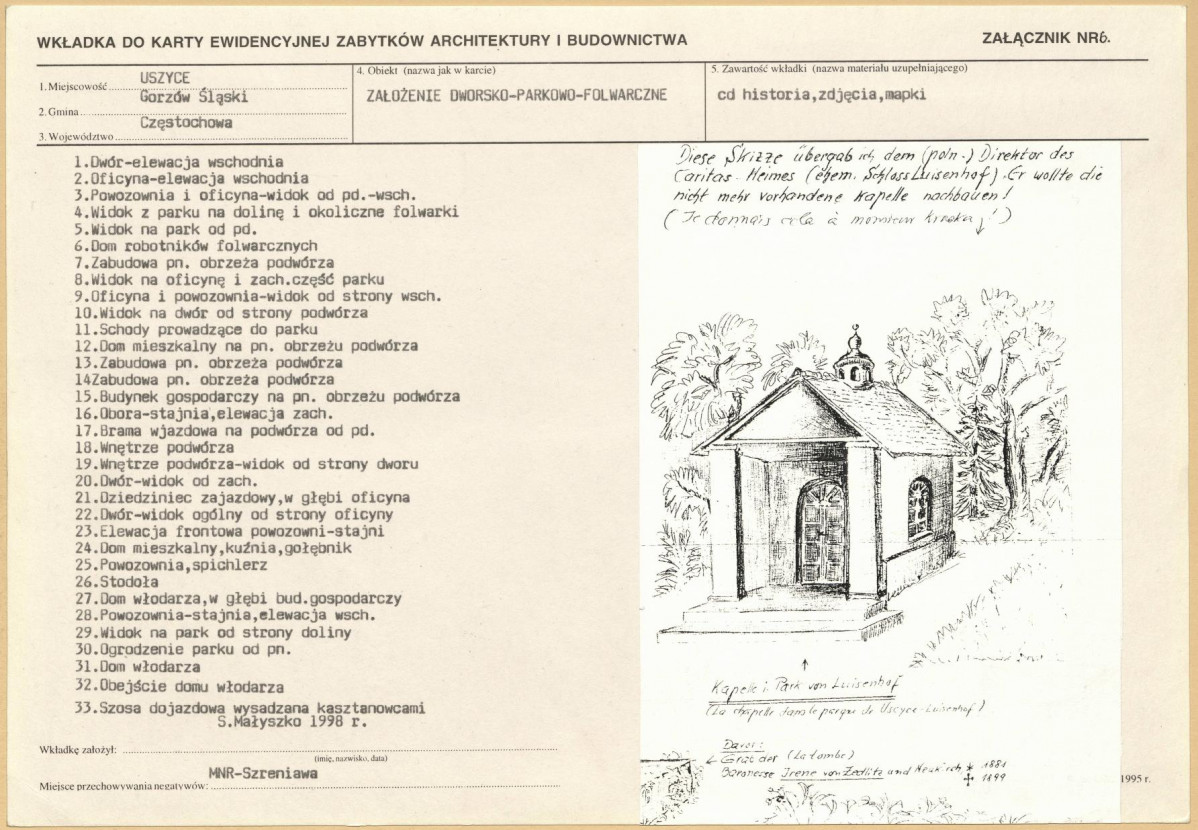 WKŁADKA DO KARTY EWIDENCYJNEJ ZABYTKÓW ARCHITEKTURY I BUDOWNICTWA
ZAŁĄCZNIK NR6.
1. Miejscowość USZYCE
Gorzów Śląski
2. Gmina
Częstochowa
3. Województwo
4. Obiekt (nazwa jak w karcie)
ZAŁOŻENIE DWORSKO-PARKOWO-FOLWARCZNE
5. Zawartość wkładki (nazwa materiału uzupełniającego)
cd historia,zdjęcia,mapki
1.Dwór-elewacja wschodnia
2.Oficyna-elewacja wschodnia
3.Powozownia i oficyna-widok od pd.-wsch.
4.Widok z parku na dolinę i okoliczne folwarki
5.Widok na park od pd.
6.Dom robotników folwarcznych
7.Zabudowa pn. obrzeża podwórza
8.Widok na oficynę i zach.część parku
9.Oficyna i powozownia-widok od strony wsch.
10.Widok na dwór od strony podwórza
11.Schody prowadzące do parku
12.Dom mieszkalny na pn. obrzeżu podwórza
13.Zabudowa pn. obrzeża podwórza
14Zabudowa pn. obrzeża podwórza
15.Budynek gospodarczy na pn. obrzeżu podwórza
16.Obora-stajnia,elewacja zach.
17.Brama wjazdowa na podwórza od pd.
18.Wnętrze podwórza
19.Wnętrze podwórza-widok od strony dworu
20.Dwór-widok od zach.
21.Dziedziniec zajazdowy,w głębi oficyna
22.Dwór-widok ogólny od strony oficyny
23.Elewacja frontowa powozowni-stajni
24.Dom mieszkalny,kuźnia,gołębnik
25.Powozownia,spichlerz
26.Stodoła
27.Dom włodarza,w głębi bud.gospodarczy
28.Powozownia-stajnia,elewacja wsch.
29.Widok na park od strony doliny
30.Ogrodzenie parku od pn.
31.Dom włodarza
32.Obejście domu włodarza
33.Szosa dojazdowa wysadzana kasztanowcami
S.Małyszko 1998 r.
Wkładkę założył:
(imię, nazwisko, data)
MNR-Szreniawa
Miejsce przechowywania negatywów:
1995 r.
Diese Skizze übergab ich dem (poln.) Direktor des
Caritas-Heimes (ehem. Schloss Luisenhof). Er wollte die
nicht mehr vorhandene Kapelle nachbauen!
(Je donnais cela à monsieur !)
Kapelle i. Park von Luisenhof
(La chapelle dans le parque de Uscyce-Luisenhof)
Davor:
Grab der (La tombe)
Baronesse Irene von Zedlitz und Neukirch * 1881
† 1899